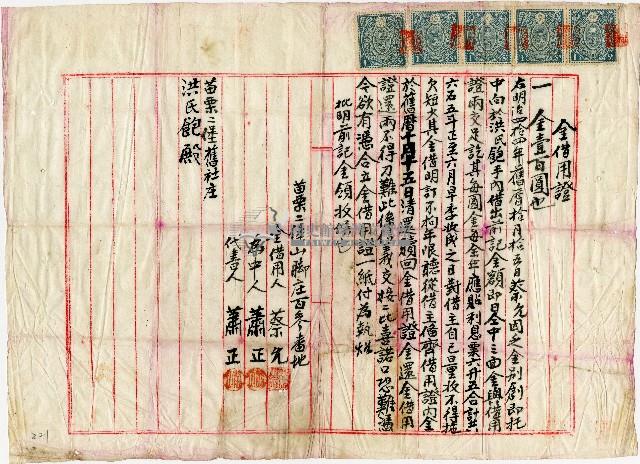 金借用證
一金壹百圓也
右明治四拾四年舊曆拾月拾五日蔡允因乏金別創即托
中向於洪氏飽手內借出前記金額即日全中三面金與借用
證兩交足訖其每圓金每全年應貼利息粟六升五合計共
六石五斗正至六月早季收成之日對借主自己量收不得拖
欠短少其金借明訂不拘年限聽從借主俻齊借用證內金
於舊曆十月十五日清還贖回金借用證金還金借用
證還兩不得刁難此係仁義交接二比喜諾口恐難憑
今欲有憑合立金借用證一紙付為執炤
批明前記金領收
苗栗二堡山腳庄百參番地
金借用人 蔡允
為中人 蕭正
代書人 蕭正
苗栗二堡舊社庄
洪氏飽殿
221